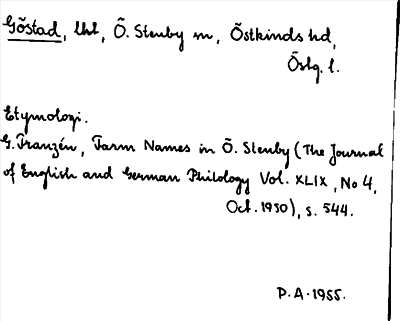 Göstad, lht, Ö. Stenby sn, Östkinds hd,
Östg. l.
Etymologi.
G. Franzén, Farm Names in Ö. Stenby (The Journal
of English and German Philology Vol. XLIX, No 4,
Oct. 1950), s. 544.
P. A. 1955.